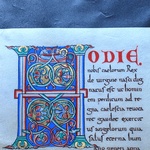 HODIE
nobis caelorum Rex
de uirgine nasci dig
natus est ut homin
em perditum ad re
gna, caelestia reuo
caret gaudet exercit
us angelorum quia
salus eterna hum